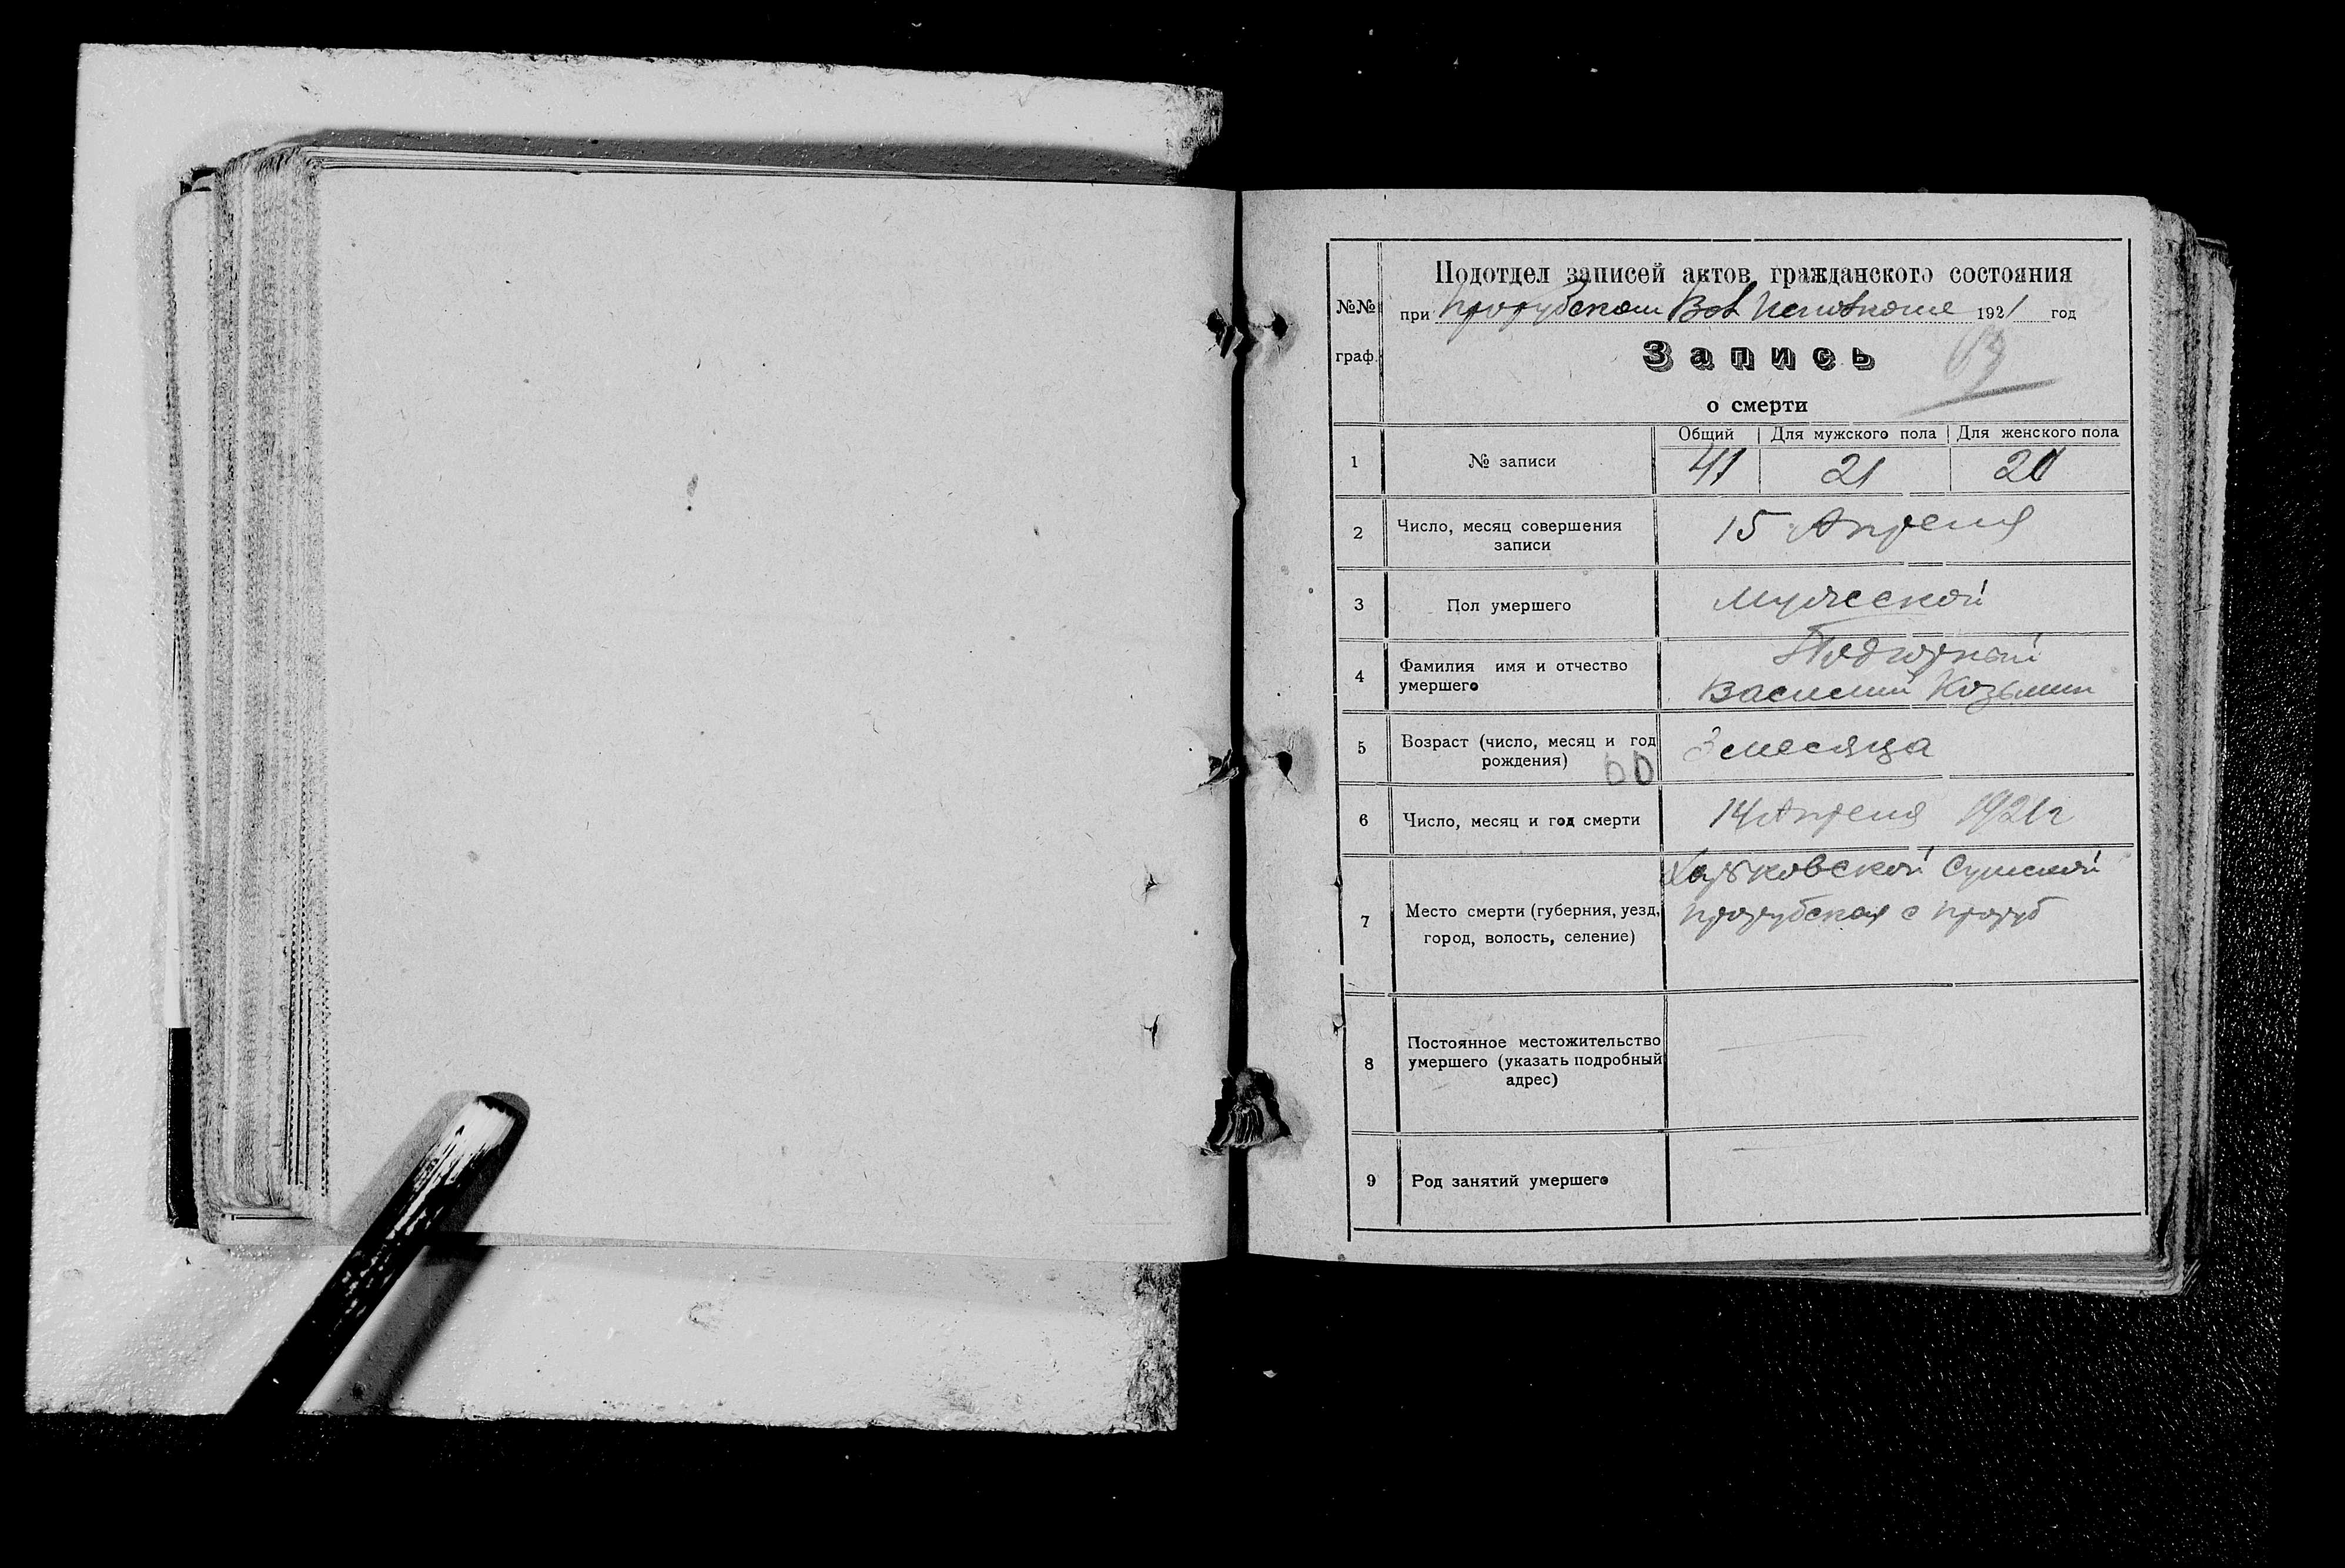 Подотдел записей актов гражданского состояния
№№
при Прорубском Вол Исполкоме 1921 год
Запись
граф.
о смерти
Общий Для мужского пола Для женского пола
1 № записи 41 21 20
2 Число, месяц совершения 15 Апреля
записи
3 Пол умершего Мужеской
4 Фамилия имя и отчество Подгорный
умершего Василий Козьмин
5 Возраст (число, месяц и год 3 месяца
рождения)
60
6 Число, месяц и год смерти 14 Апреля 1921 г
Харьковской Сумской
7 Место смерти (губерния, уезд, Прорубская с Проруб
город, волость, селение)
Постоянное местожительство
8 умершего (указать подробный
адрес)
9 Род занятий умершего